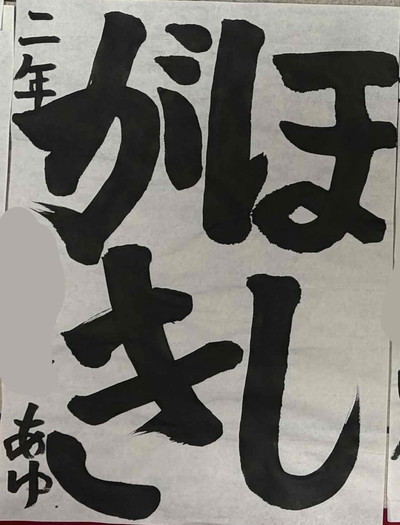 ほし
がき
二年
あゆ